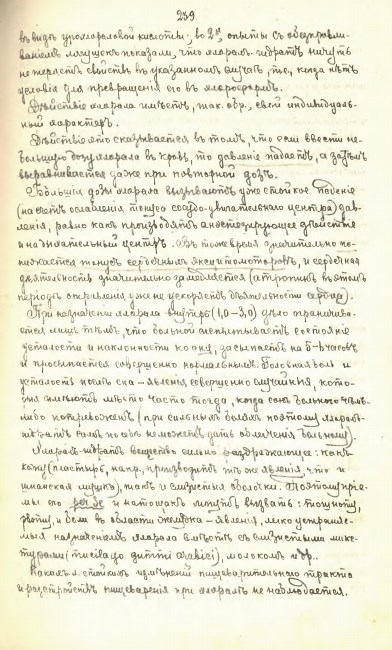 239.
въ видѣ урохлораловой кислоты; во 2ыхъ, опыты съ обезкровли-
ваніемъ лягушекъ показали, что хлоралъ-гидратъ ничуть
не теряетъ свойствъ въ указанномъ случаѣ, т.е., когда нѣтъ
условія для превращенія его въ хлороформъ.
Дѣйствіе хлорала имѣетъ, так. обр., свой индивидуаль-
ный характеръ.
Дѣйствіе это сказывается въ томъ, что если ввести не-
большую дозу хлорала въ кровь, то давленіе падаетъ, а затѣмъ
выравнивается даже при повторной дозѣ.
Большія дозы хлорала вызываютъ уже стойкое паденіе
(на счетъ ослабленія тонуса сосудо-двигательнаго центра) дав-
ленія, равно какъ производятъ анестезирующее дѣйствіе
и на дыхательный центръ. Въ то же время значительно по-
нижается тонусъ сердечныхъ эксцитомоторовъ, и сердечная
дѣятельность значительно замедляется (атропинъ въ этомъ
періодѣ отравленія уже не ускоряетъ дѣятельности сердца).
При назначеніи хлорала внутрь (1,0–3,0) дѣло ограничива-
ется лишь тѣмъ, что больной испытываетъ состояніе
усталости и наклонности ко сну, засыпаетъ на 5–6 часовъ
и просыпается совершенно нормальнымъ. Головная боль и
усталость послѣ сна – явленія совершенно случайныя, кото-
рыя имѣютъ мѣсто часто тогда, когда сонъ больного чѣмъ-
либо потревоженъ (при сильныхъ боляхъ поэтому хлоралъ-
гидратъ самъ по себѣ не можетъ дать облегченія больному).
Хлоралъ-гидратъ вещество сильно раздражающее: какъ
кожу (пластырь, напр., производитъ тѣ же явленія, что и
шпанская мушка), такъ и слизистыя оболочки. Поэтому пріе-
мы его per se и натощакъ могутъ вызвать: тошноту,
рвоту, и боли въ области желудка – явленія, легко устраняе-
мыя назначеніемъ хлорала вмѣстѣ съ слизистыми микс-
турами (mucilago gummi arabici), молокомъ и др.
Какихъ л. стойкихъ измѣненій пищеварительнаго тракта
и разстройствъ пищеваренія при хлоралѣ не наблюдается.